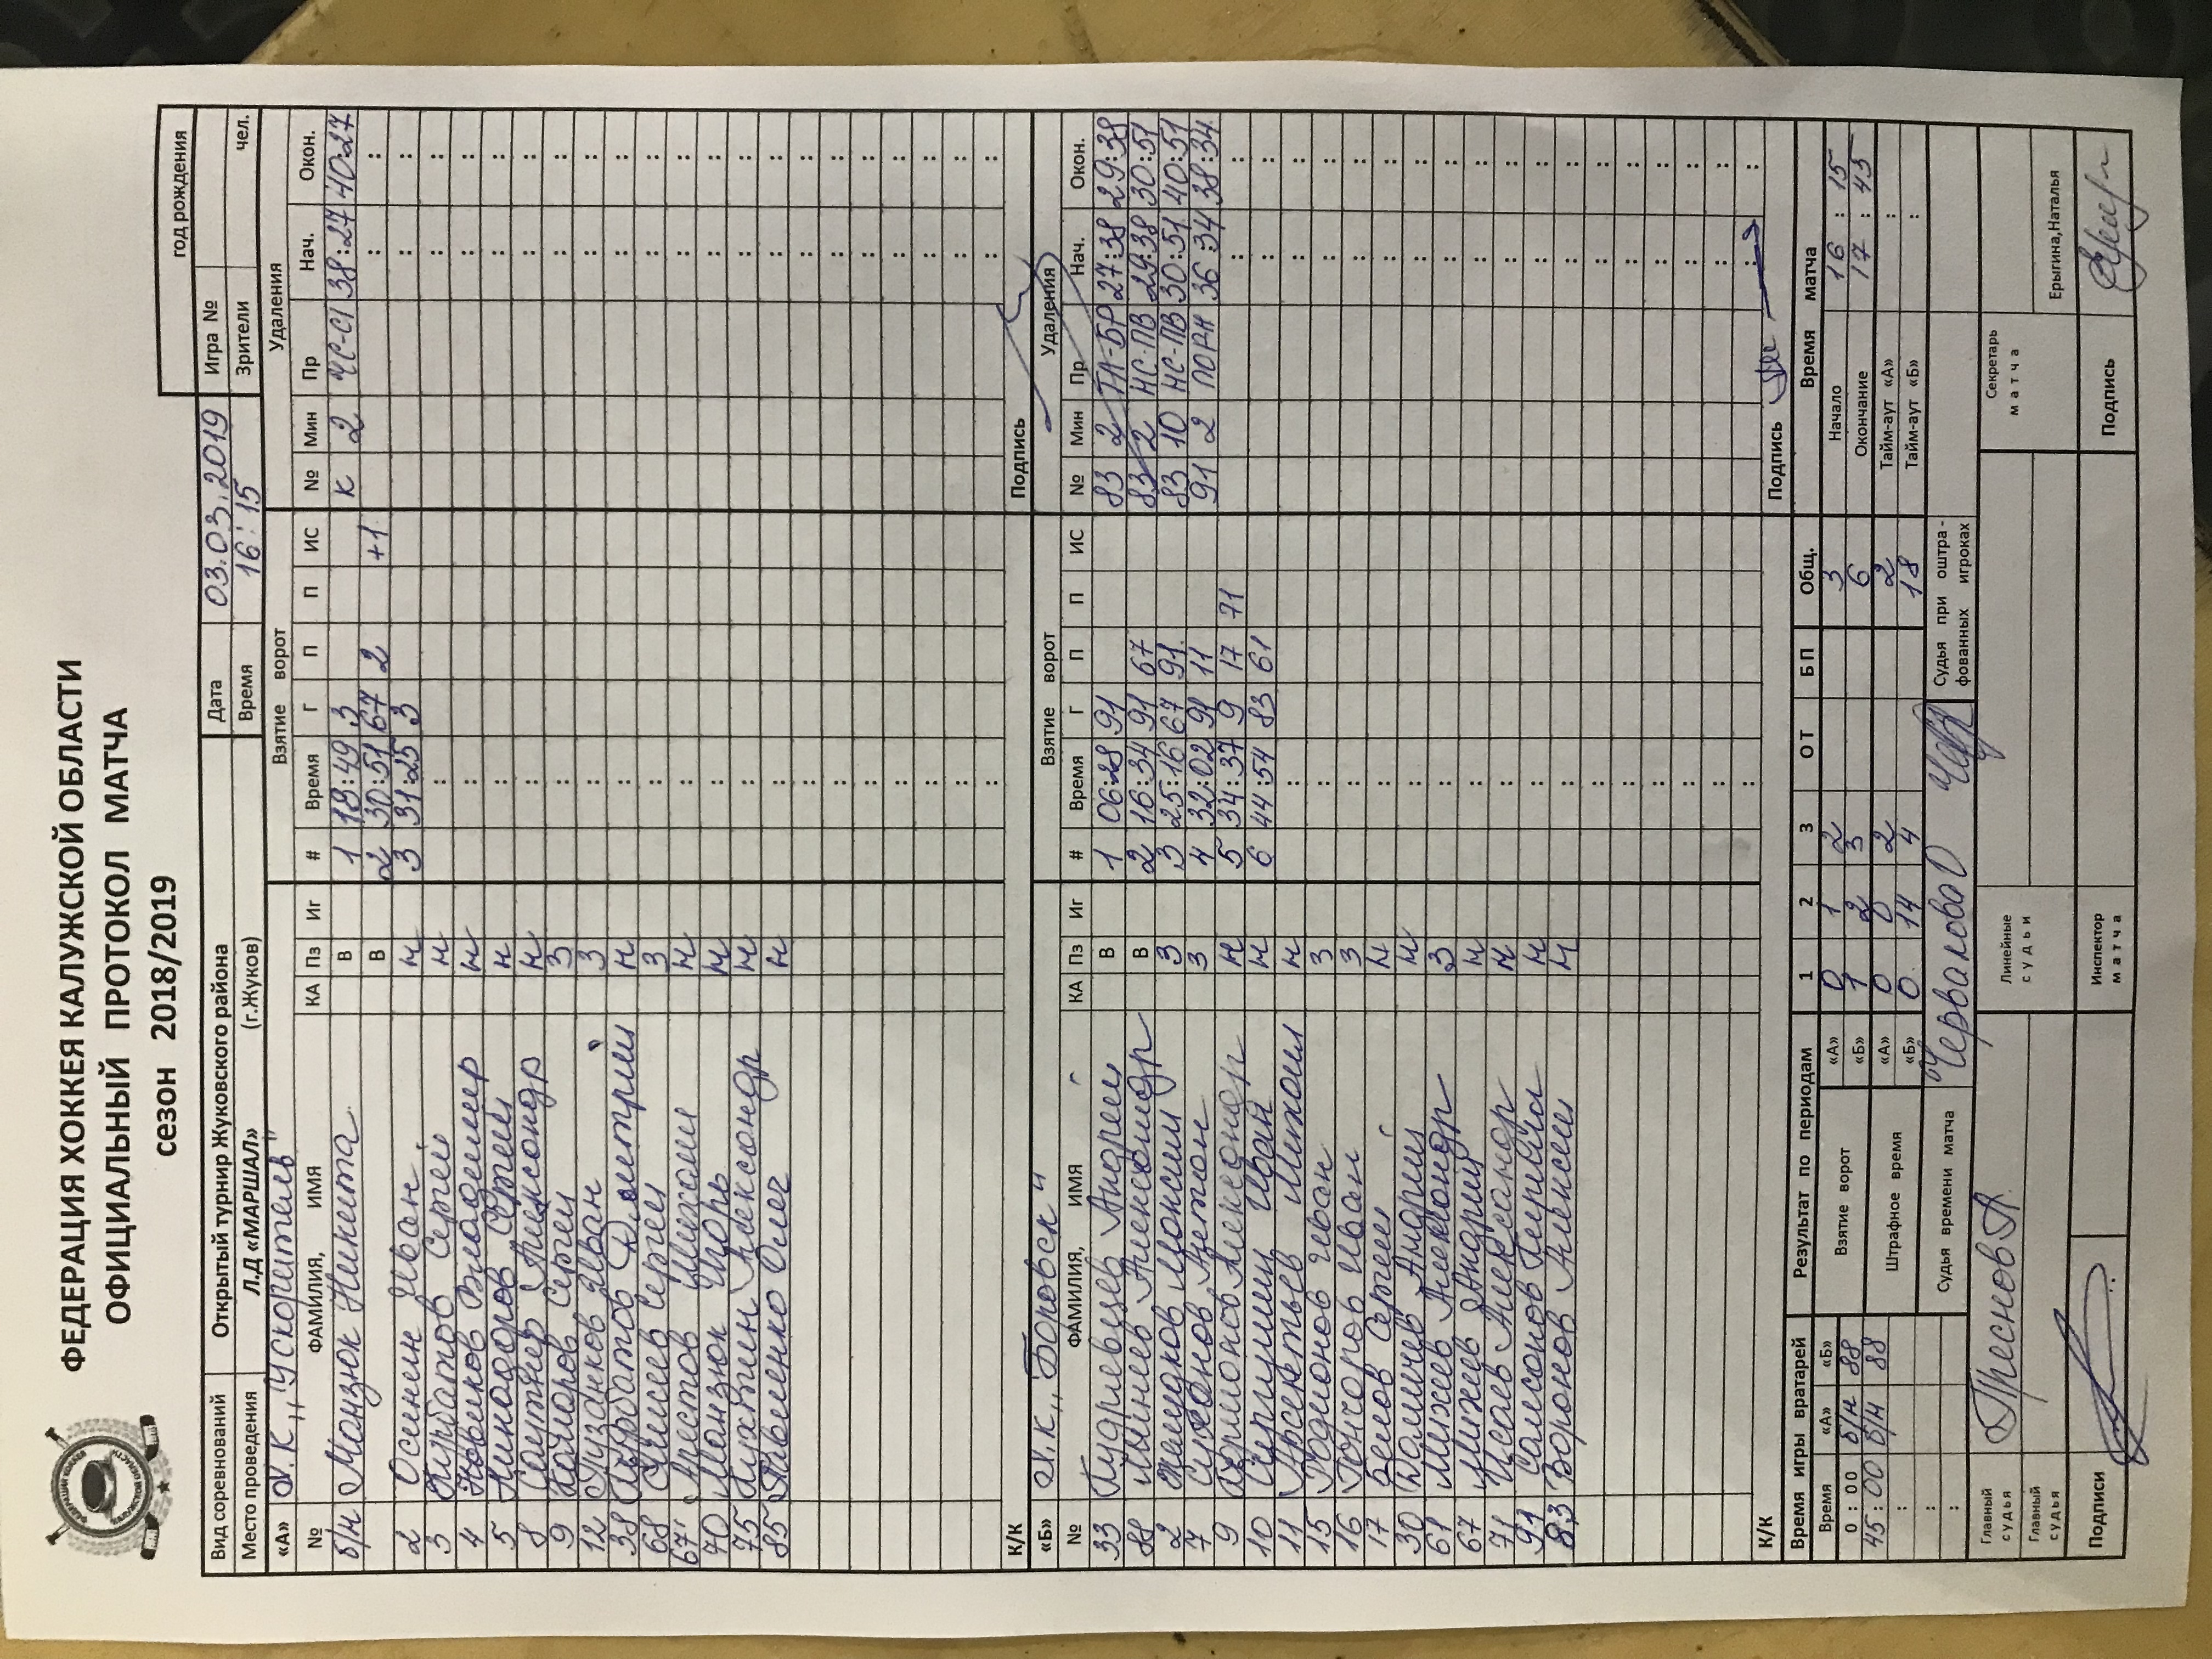 ФЕДЕРАЦИЯ ХОККЕЯ КАЛУЖСКОЙ ОБЛАСТИ
ОФИЦИАЛЬНЫЙ ПРОТОКОЛ МАТЧА
сезон 2018/2019
год рождения
Вид соревнований Открытый турнир Жуковского района Дата 03.03.2019 Игра №
Место проведения Л.Д «МАРШАЛ» (г.Жуков) Время 16:15 Зрители чел.
«А» Х.К. „Ускоритель" Взятие ворот Удаления
№ ФАМИЛИЯ, ИМЯ КА Пз Иг # Время Г П П ИС № Мин Пр Нач. Окон.
б/н Мазнюк Никита В 1 18:49 3 К 2 ЧС-СТ 38:27 40:27
В 2 30:51 67 2 +1 : :
2 Осинин Иван н 3 31:25 3 : :
3 Курбатов Сергей н : : :
4 Новиков Владимир н : : :
5 Сергей н : : :
8 Александр н : : :
9 Сергей З : : :
12 Пузанков Иван З : : :
38 Курбатов Дмитрий н : : :
68 Сергей З : : :
67 Арестов Михаил н : : :
70 Мазнюк Игорь н : : :
75 Лухтин Александр н : : :
85 Павленко Олег н : : :
К/К Подпись
«Б» Х.К. „Боровск" Взятие ворот Удаления
№ ФАМИЛИЯ, ИМЯ КА Пз Иг # Время Г П П ИС № Мин Пр Нач. Окон.
33 Кудрявцев Андрей В 1 06:28 91 83 2 27:38 29:38
88 Минеев Александр В 2 16:34 91 67 83 2 НС-ПВ 29:38 30:51
2 Максим З 3 25:16 67 91 83 10 НС-ПВ 30:51 40:51
7 Суханов Антон З 4 32:02 91 11 91 2 ПОДН 36:34 38:34
9 Александр н 5 34:37 9 17 71 : :
10 Иван н 6 44:54 83 61 : :
11 Арсентьев Михаил н : : :
15 Родионов Иван З : : :
16 Гончаров Иван З : : :
17 Белов Сергей н : : :
30 Андрей н : : :
61 Михеев Александр З : : :
67 Михеев Андрей н : : :
71 Исаев Александр н : : :
91 Самсонов н : : :
83 Воронов Алексей н : : :
К/К Подпись
Время игры вратарей Результат по периодам 1 2 3 ОТ БП Общ. Время матча
Время «А» «Б» Взятие ворот «А» 0 1 2 3 Начало 16 : 15
0 : 00 б/н 88 «Б» 1 2 3 6 Окончание 17 : 45
45 : 00 б/н 88 Штрафное время «А» 0 0 2 2 Тайм-аут «А» :
: «Б» 0 14 4 18 Тайм-аут «Б» :
: Судья времени матча Судья при оштрафованных игроках
Главный судья Преснов А. Линейные судьи Секретарь матча
Главный судья Ерыгина,Наталья
Подписи Инспектор матча Подпись